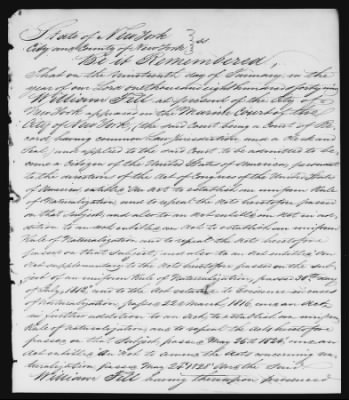 State of New York
City and County of New York } ss
Be it Remembered,
That on the Nineteenth day of January in the
year of our Lord one thousand eight hundred forty
William Till at present of the City of
New York appeared in the Marine Court of the
City of New York, (the said Court being a Court of Re-
cord, having common law Jurisdiction, and a Clerk and
Seal) and applied to the said Court to be admitted to be-
come a Citizen of the United States of America, pursuant
to the directions of the Act of Congress of the United States
of America, entitled An Act to establish an uniform Rule
of Naturalization, and to repeal the Acts heretofore passed
on that Subject, and also to an Act entitled an Act in ad-
dition to an Act entitled an Act to establish an uniform
Rule of Naturalization and to repeal the Acts heretofore
passed on that Subject, and also to an Act entitled An
Act supplementary to the Acts heretofore passed on the sub-
ject of an uniform Rule of Naturalization, passed 30th
of July, 1813, and to the Act relative to Evidence in cases
of Naturalization, passed 22d March, 1816, and an Act
in further addition to an Act, to establish an uniform
Rule of Naturalization, and to repeal the Acts heretofore
passed on that Subject passed May 26th 1824, and an
Act entitled An Act to amend the Acts concerning na-
turalization passed May 24th 1828 And the said
William Till having thereupon produced